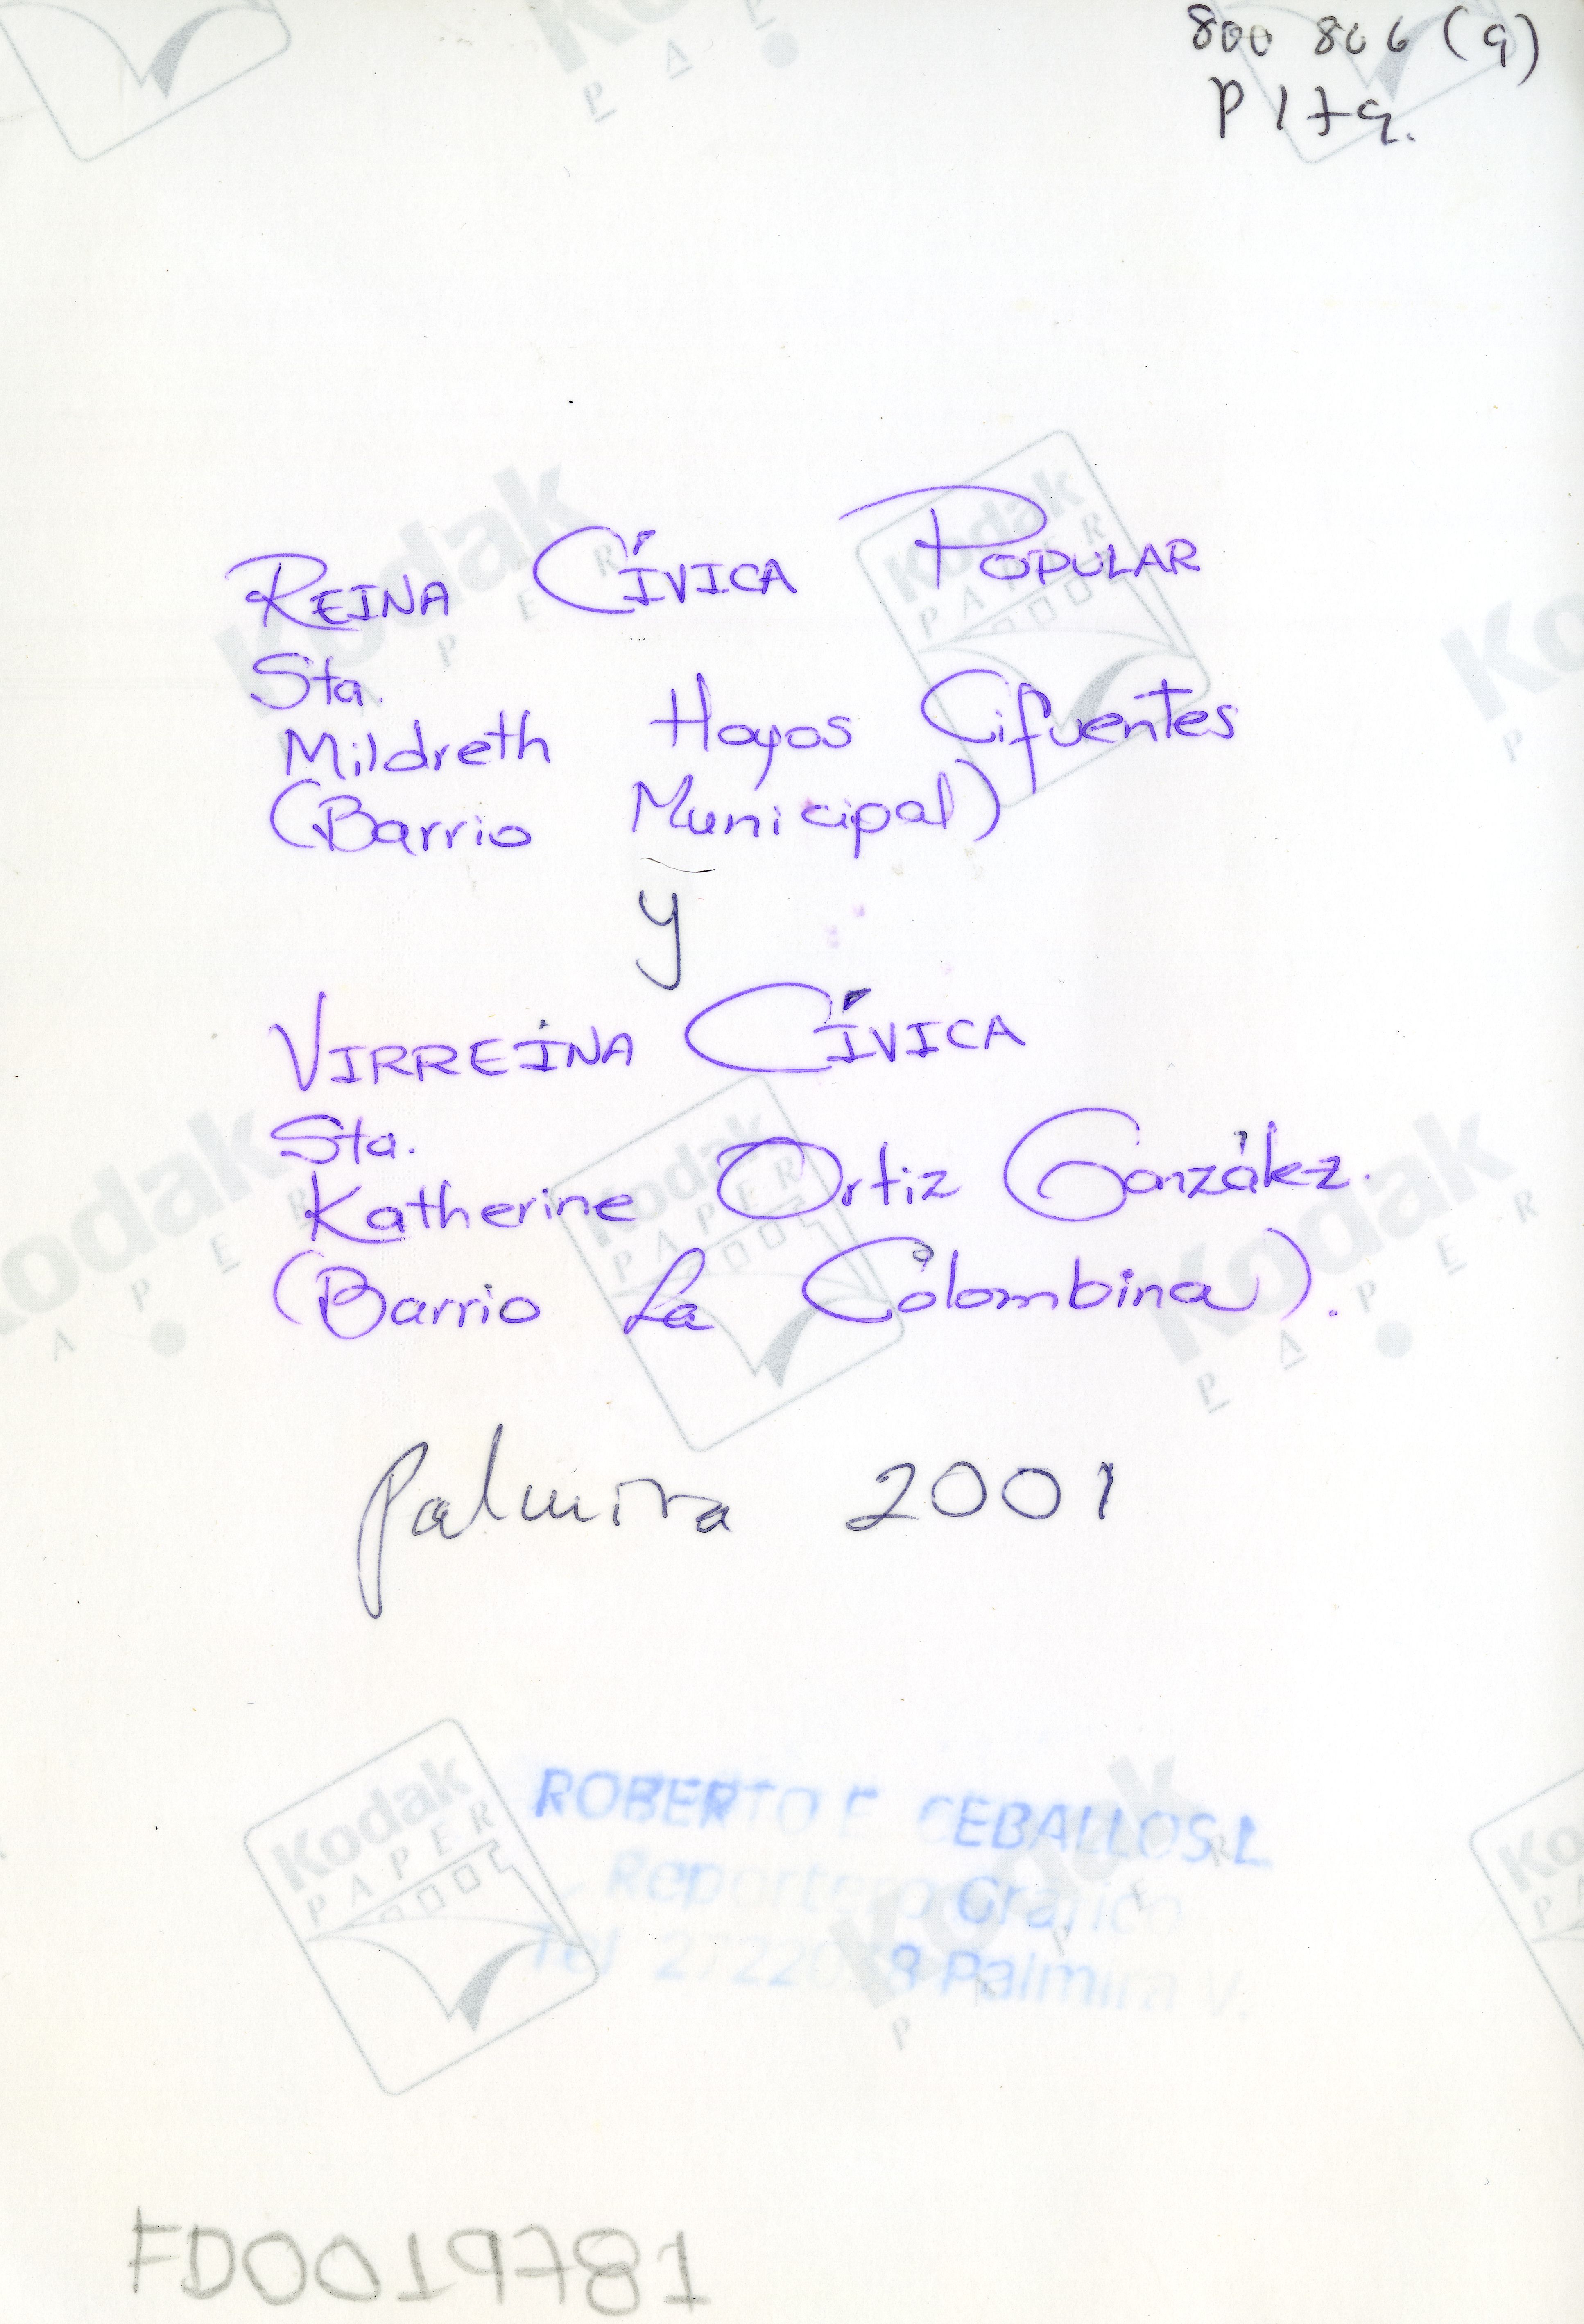 800 806 (9)
P 17 9.
REINA CÍVICA POPULAR
Sta.
Mildreth Hoyos Cifuentes
(Barrio Municipal)
y
VIRREINA CÍVICA
Sta.
Katherine Ortiz González.
(Barrio La Colombina).
Palmira 2001
ROBERTO F CEBALLOS L
Reportero Gráfico
Tel Palmira V.
FD0019781
Kodak
PAPER